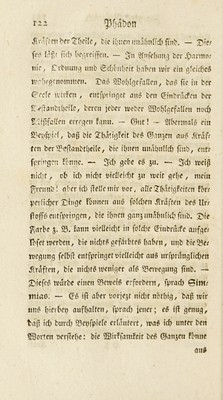 122 Phädon
Kräften der Theile, die ihnen unähnlich sind. — Die-
ses läßt sich begreiffen. — In Ansehung der Harmo-
nie, Ordnung und Schönheit haben wir ein gleiches
wahrgenommen. Das Wohlgefallen, das sie in der
Seele wirken, entspringet aus den Eindrücken der
Bestandtheile, deren jeder weder Wohlgefallen noch
Mißfallen erregen kann. — Gut! — Abermals ein
Beyspiel, daß die Thätigkeit des Ganzen aus Kräf-
ten der Bestandtheile, die ihnen unähnlich sind, ent-
springen könne. — Ich gebe es zu. — Ich weiß
nicht, ob ich nicht vielleicht zu weit gehe, mein
Freund! aber ich stelle mir vor, alle Thätigkeiten kör-
perlicher Dinge können aus solchen Kräften des Ur-
stoffs entspringen, die ihnen ganz unähnlich sind. Die
Farbe z. B. kann vielleicht in solche Eindrücke aufge-
löset werden, die nichts gefärbtes haben, und die Be-
wegung selbst entspringet vielleicht aus ursprünglichen
Kräften, die nichts weniger als Bewegung sind. —
Dieses würde einen Beweis erfordern, sprach Sim-
mias. — Es ist aber vorjetzt nicht nöthig, daß wir
uns hierbey aufhalten, sprach jener; es ist genug,
daß ich durch Beyspiele erläutert, was ich unter den
Worten verstehe: die Wirksamkeit des Ganzen könne
aus